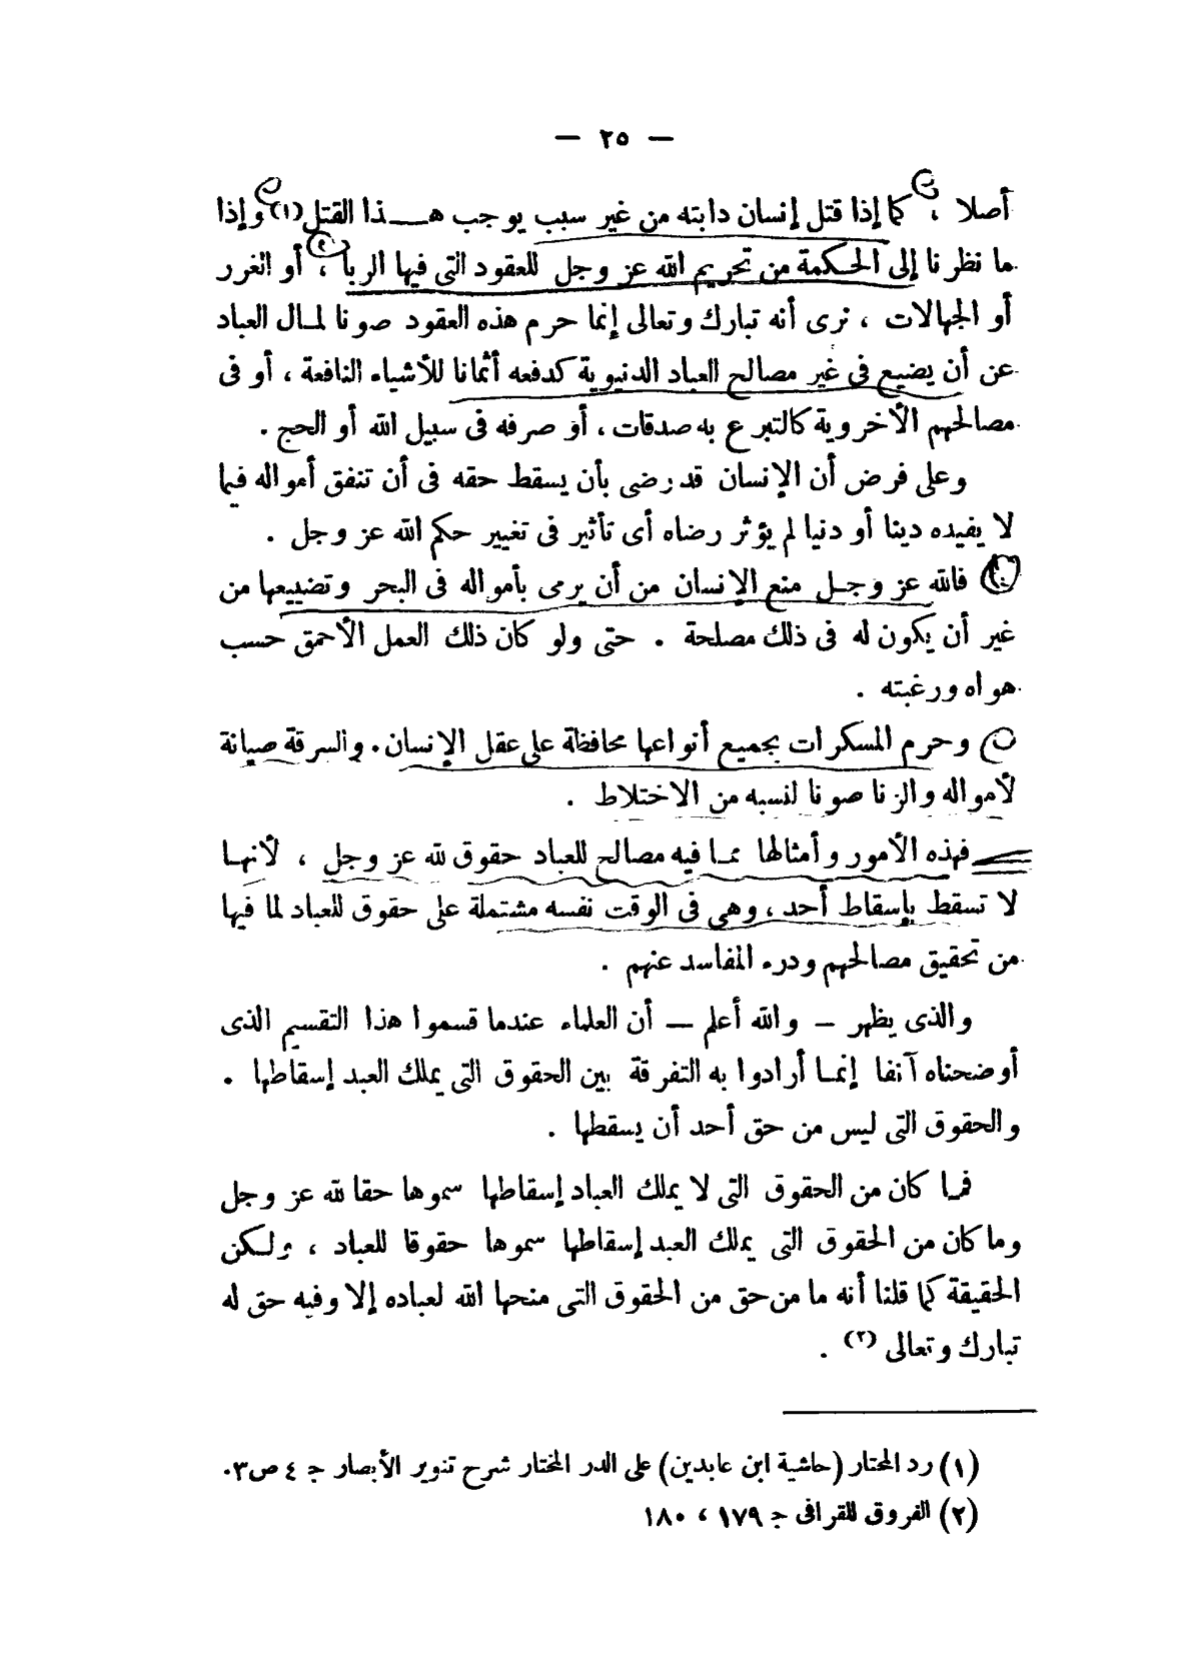 — ٢٥ —
أصلا ، كما إذا قتل إنسان دابته من غير سبب يوجب هـذا القتل(١) وإذا
ما نظرنا إلى الحكمة من تحريم الله عز وجل للعقود التى فيها الربا ، أو الغرر
أو الجهالات ، نرى أنه تبارك وتعالى إنما حرم هذه العقود صونا لمـال العباد
عن أن يضيع فى غير مصالح العباد الدنيوية كدفعه أثمانا للأشياء النافعة ، أو فى
مصالحهم الأخروية كالتبرع به صدقات ، أو صرفه فى سبيل الله أو الحج .
وعلى فرض أن الإنسان قد رضى بأن يسقط حقه فى أن تنفق أمواله فيما
لا يفيده دينا أو دنيا لم يؤثر رضاه أى تأثير فى تغيير حكم الله عز وجل .
فالله عز وجـل منع الإنسان من أن يرمى بأمواله فى البحر وتضييعها من
غير أن يكون له فى ذلك مصلحة . حتى ولو كان ذلك العمل الأحمق حسب
هواه ورغبته .
وحرم المسكرات بجميع أنواعها محافظة على عقل الإنسان . والسرقة صيانة
لأمواله والزنا صونا لنسبه من الاختلاط .
فهذه الأمور وأمثالها ممـا فيه مصالح للعباد حقوق لله عز وجل ، لأنهـا
لا تسقط بإسقاط أحد ، وهى فى الوقت نفسه مشتملة على حقوق للعباد لما فيها
من تحقيق مصالحهم ودرء المفاسد عنهم .
والذى يظهر – والله أعلم – أن العلماء عندما قسموا هذا التقسيم الذى
أوضحناه آنفا إنمـا أرادوا به التفرقة بين الحقوق التى يملك العبد إسقاطها .
والحقوق التى ليس من حق أحد أن يسقطها .
فمـا كان من الحقوق التى لا يملك العباد إسقاطها سموها حقا لله عز وجل
وما كان من الحقوق التى يملك العبد إسقاطها سموها حقوقا للعباد ، ولـكن
الحقيقة كما قلنا أنه ما من حق من الحقوق التى منحها الله لعباده إلا وفيه حق له
تبارك وتعالى (٢) .
(١) رد المحتار (حاشية ابن عابدين) على الدر المختار شرح تنوير الأبصار جـ ٤ ص٣٠
(٢) الفروق للقرافى جـ ١٧٩ ، ١٨٠